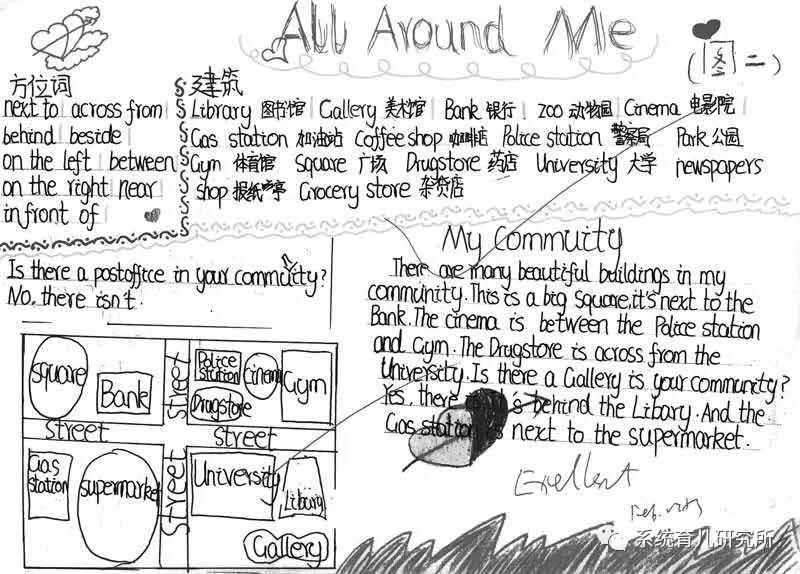 All Around Me
(图二)
方位词
next to across from
behind beside
on the left between
on the right near
in front of
建筑
Library 图书馆 Gallery 美术馆 Bank 银行 zoo 动物园 Cinema 电影院
Gas station 加油站 Coffee shop 咖啡店 Police station 警察局 Park 公园
Gym 体育馆 Square 广场 Drugstore 药店 University 大学 newspapers
shop 报纸亭 Grocery store 杂货店
Is there a postoffice in your commuity?
No, there isn't.
square
Bank
Street
Police station
Cinema
Gym
Drugstore
street
street
Gas station
supermarket
Street
University
Library
Gallery
My Commuity
There are many beautiful buildings in my
community. This is a big square. it's next to the
Bank. The cinema is between the Police station
and Gym. The Drugstore is across from the
University. Is there a Gallery is your community?
Yes, there behind the Libary. And the
Gas station is next to the supermarket.
系统育儿研究所